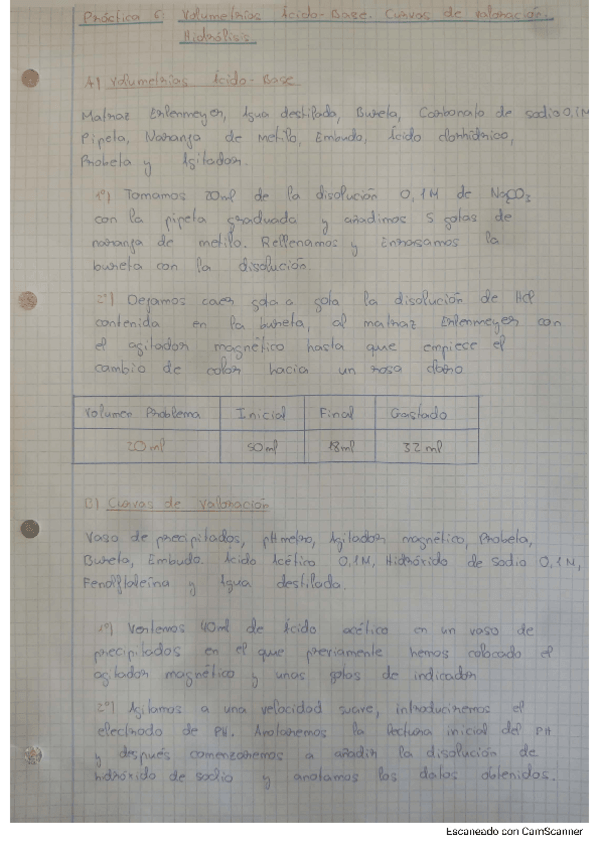 Práctica 6 Volumetrías Ácido-Base. Curvas de valoración.
Hidrólisis
A) Volumetrías Ácido-Base
Matraz Erlenmeyer, Agua destilada, Bureta, Carbonato de sodio 0,1M
Pipeta, Naranja de metilo, Embudo, Ácido clorhídrico,
Probeta y Agitador.
1º) Tomamos 20ml de la disolución 0,1M de Na2CO3
con la pipeta graduada y añadimos 5 gotas de
naranja de metilo. Rellenamos y enrasamos la
bureta con la disolución.
2º) Dejamos caer gota a gota la disolución de HCl
contenida en la bureta, al matraz Erlenmeyer con
el agitador magnético hasta que empiece el
cambio de color hacia un rosa claro
Volumen Problema Inicial Final Gastado
20ml 50ml 18ml 32ml
C) Curvas de valoración
Vaso de precipitados, pHmetro, Agitador magnético, Probeta,
Bureta, Embudo. Ácido Acético 0,1M, Hidróxido de sodio 0,1M,
Fenolftaleína y Agua destilada.
1º) Vertemos 40ml de Ácido acético en un vaso de
precipitados en el que previamente hemos colocado el
agitador magnético y unas gotas de indicador
2º) Agitamos a una velocidad suave, introduciremos el
electrodo de PH. Anotaremos la lectura inicial del PH
y después comenzaremos a añadir la disolución de
hidróxido de sodio y anotamos los datos obtenidos.
Escaneado con CamScanner